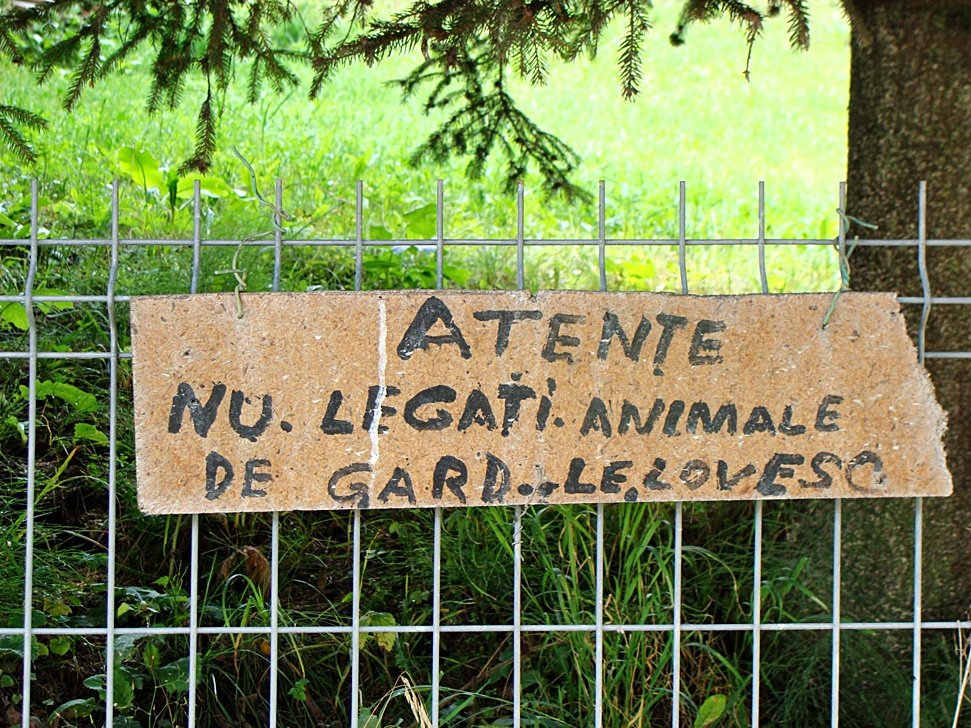 ATENȚE
NU. LEGAȚI. ANIMALE
DE GARD... LE. LOVESC